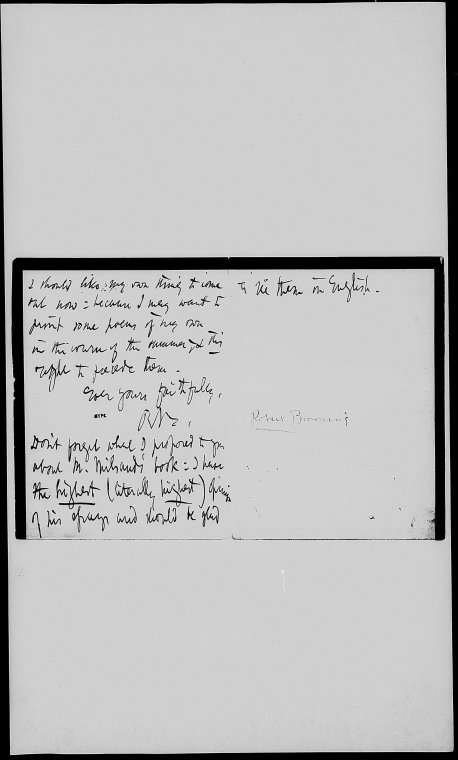 I should like : my own thing to come
out now = because I may want to
print some poems of my own
in the course of the summer, & this
ought to precede them.
Ever yours faithfully,
RB.
Don't forget what I proposed to you
about M. Milsand's book = I have
the highest (literally highest) opinion
of his essays and should be glad
to see them in English.
Robert Browning